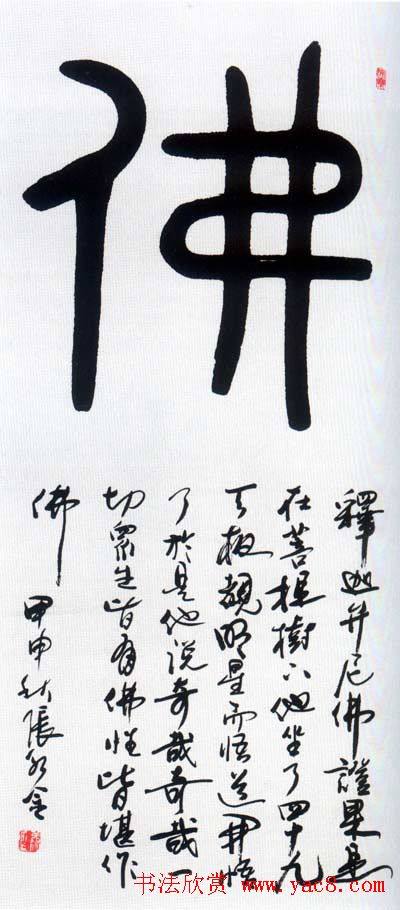 佛
釋迦牟尼佛證果是
在菩提樹下他坐了四十九
天夜覩明星而悟道開悟
了於是他說奇哉奇哉一
切眾生皆有佛性皆堪作
佛 甲申秋張
书法欣赏 www.yac8.com